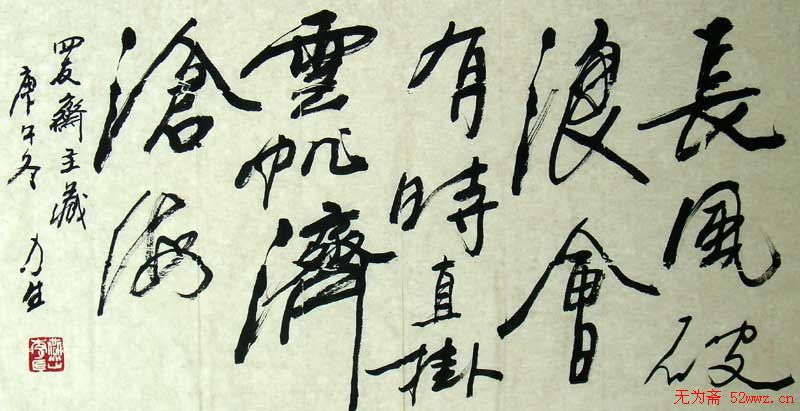 長風破
浪會
有時直掛
雲帆濟
滄海
四友齋主藏
庚午冬
无为斋 52wwz.cn